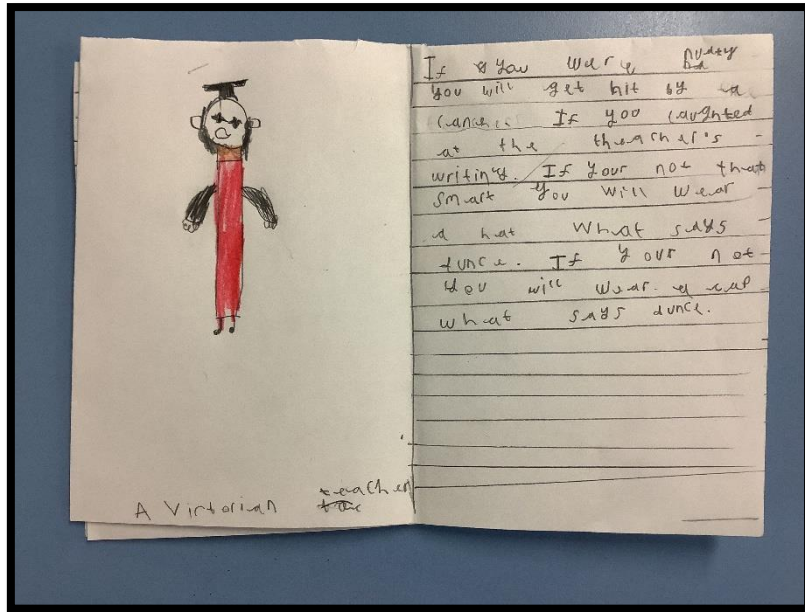 A Victorian teacher
If you were nudty
you will get hit by a
canes. If you laughted
at the theacher's
writing. If your not that
smart you will wear
a hat what says
dunce. If your not
you will wear a cap
what says dunce.